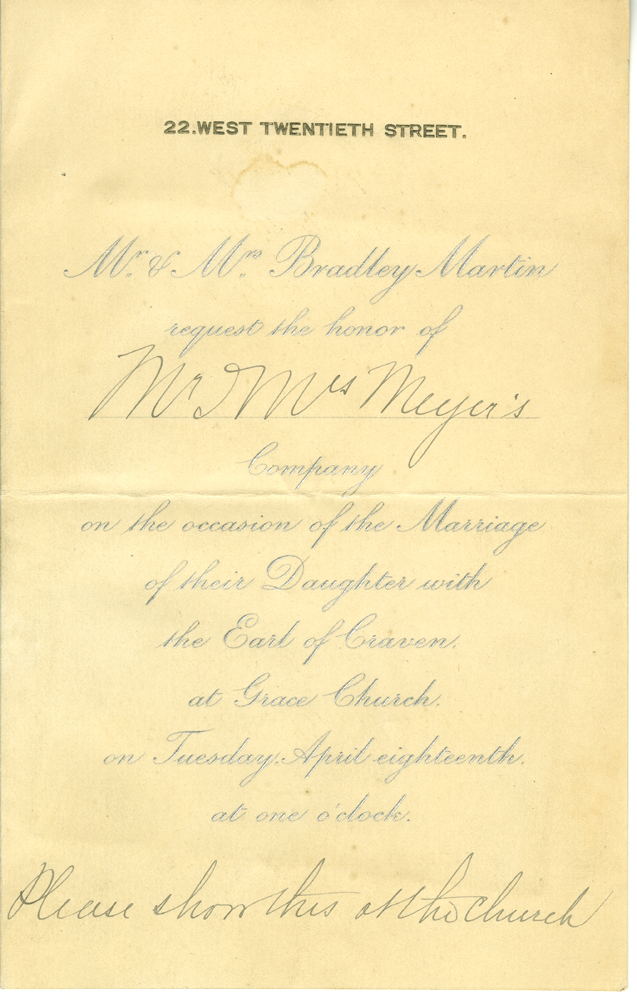 22.WEST TWENTIETH STREET.
Mr. & Mrs. Bradley Martin
request the honor of
Mr & Mrs Meyer's
Company
on the occasion of the Marriage
of their Daughter with
the Earl of Craven.
at Grace Church.
on Tuesday. April eighteenth.
at one o'clock.
Please show this at the church